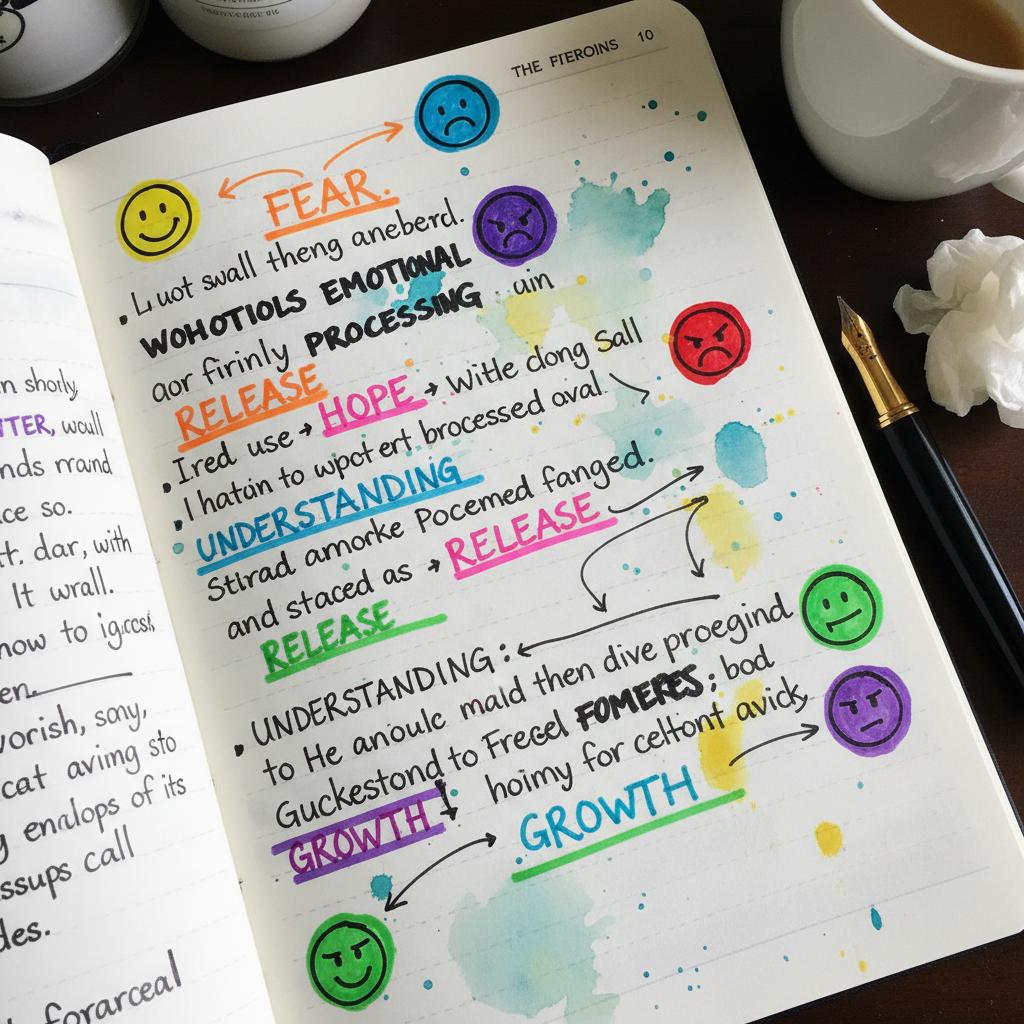 THE FTEROINS 10
FEAR.
• L uot swall theng aneberd.
WOHOTIOLS EMOTIONAL
aor firinly PROCESSING .. ain
RELEASE
• Ired use → HOPE → Witle dong Sall
• I hatan to wpot ert brocessed oval.
UNDERSTANDING
Stirad amorke Pocemed fanged.
and staced as → RELEASE
RELEASE
• UNDERSTANDING:
to He anoulc mald then dive proegind
Guckestond to Fregel FOMERES; bod
hoimy for celtiont avick,
GROWTH
GROWTH
n shorly,
TER, woull
nds mrand
ce so.
t. dar, with
It wrall.
now to
en.
vorish, sony,
cat aving sto
y enalops of its
ssups call
des.
forarceal